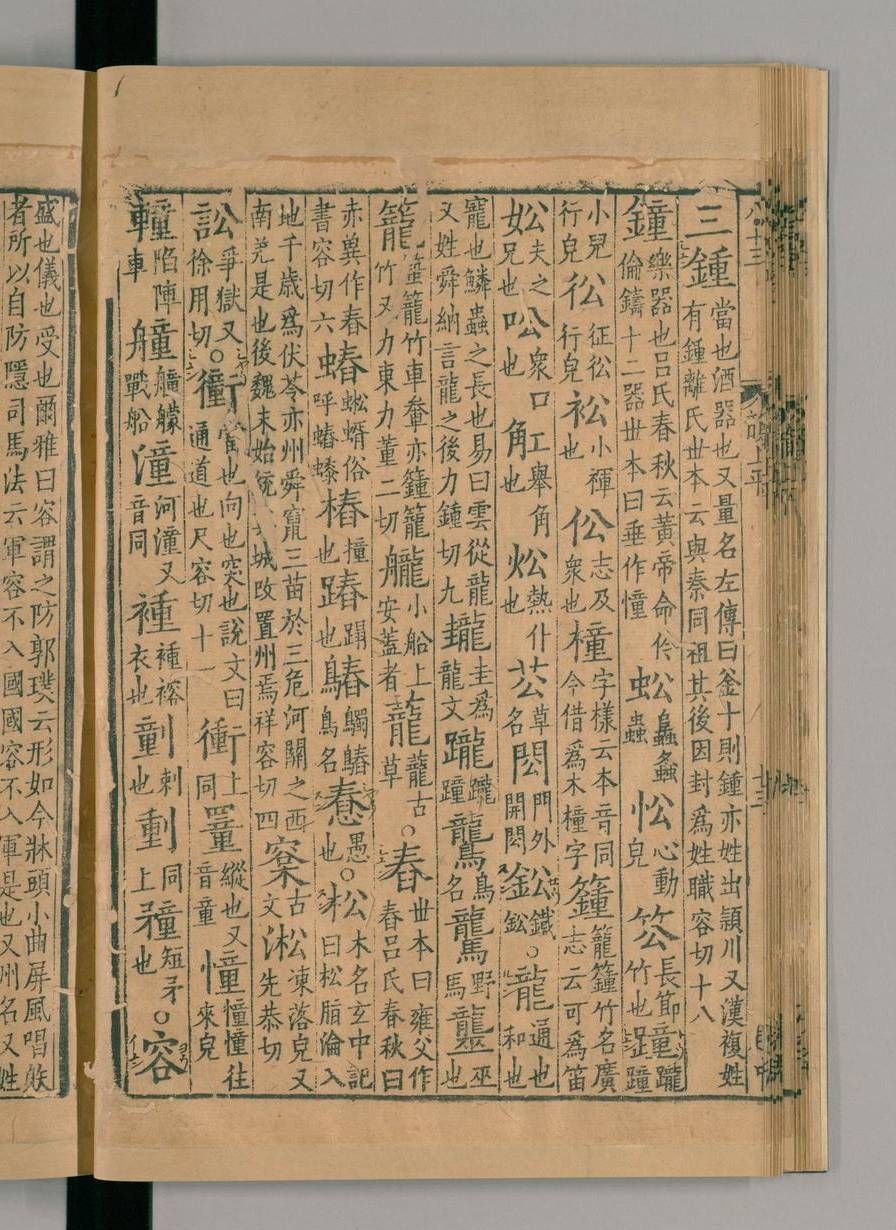 三鍾當也酒器也又量名左傳曰釜十則鍾亦姓出潁川又漢複姓有鍾離氏世本云與秦同祖其後因封爲姓職容切十八
鐘樂器也呂氏春秋云黃帝命伶倫鑄十二器世本曰垂作憧蚣蟲忪心動皃䇗長節竹也蹱躘蹱
小兒行皃彸征彸行皃衳小褌也伀志及衆也橦字樣云本音同今借爲木橦字籦籠籦竹名廣志云可爲笛
妐夫之兄也㕬衆口也舉角也炂熱也芸草名閧門外開閧鈆鐵鈆○龍通也和也
寵也鱗蟲之長也易曰雲從龍又姓舜納言龍之後力鍾切九圭爲龍文躘躘蹱鸗鳥名驡野馬巫也
籠籠竹車軬亦籦籠竹又力東力董二切小船上安蓋者蘢蘢古草○舂世本曰雍父作舂呂氏春秋曰
赤冀作舂書容切六蜙蝑俗呼蝽䗥樁橦也蹖蹋也䳲鸀䳲鳥名惷愚也○松木名玄中記曰松脂淪入
地千歲爲伏苓亦州舜竄三苗於三危河關之西南羌是也後魏末始城改置州焉祥容切四古文淞凍落皃又先恭切
訟爭獄又徐用切○衝當也向也突也說文曰通道也尺容切十一衝上同罿䍖也又音童憧憧憧往來皃
䡴陷陣車艟艨艟戰船潼河潼又音同褈褈褣衣也剷刺也剩同上䂌短矛也○容
盛也儀也受也爾雅曰容謂之防郭璞云形如今牀頭小曲屏風唱躲
者所以自防隱司馬法云軍容不入國國容不入軍是也又州名又姓